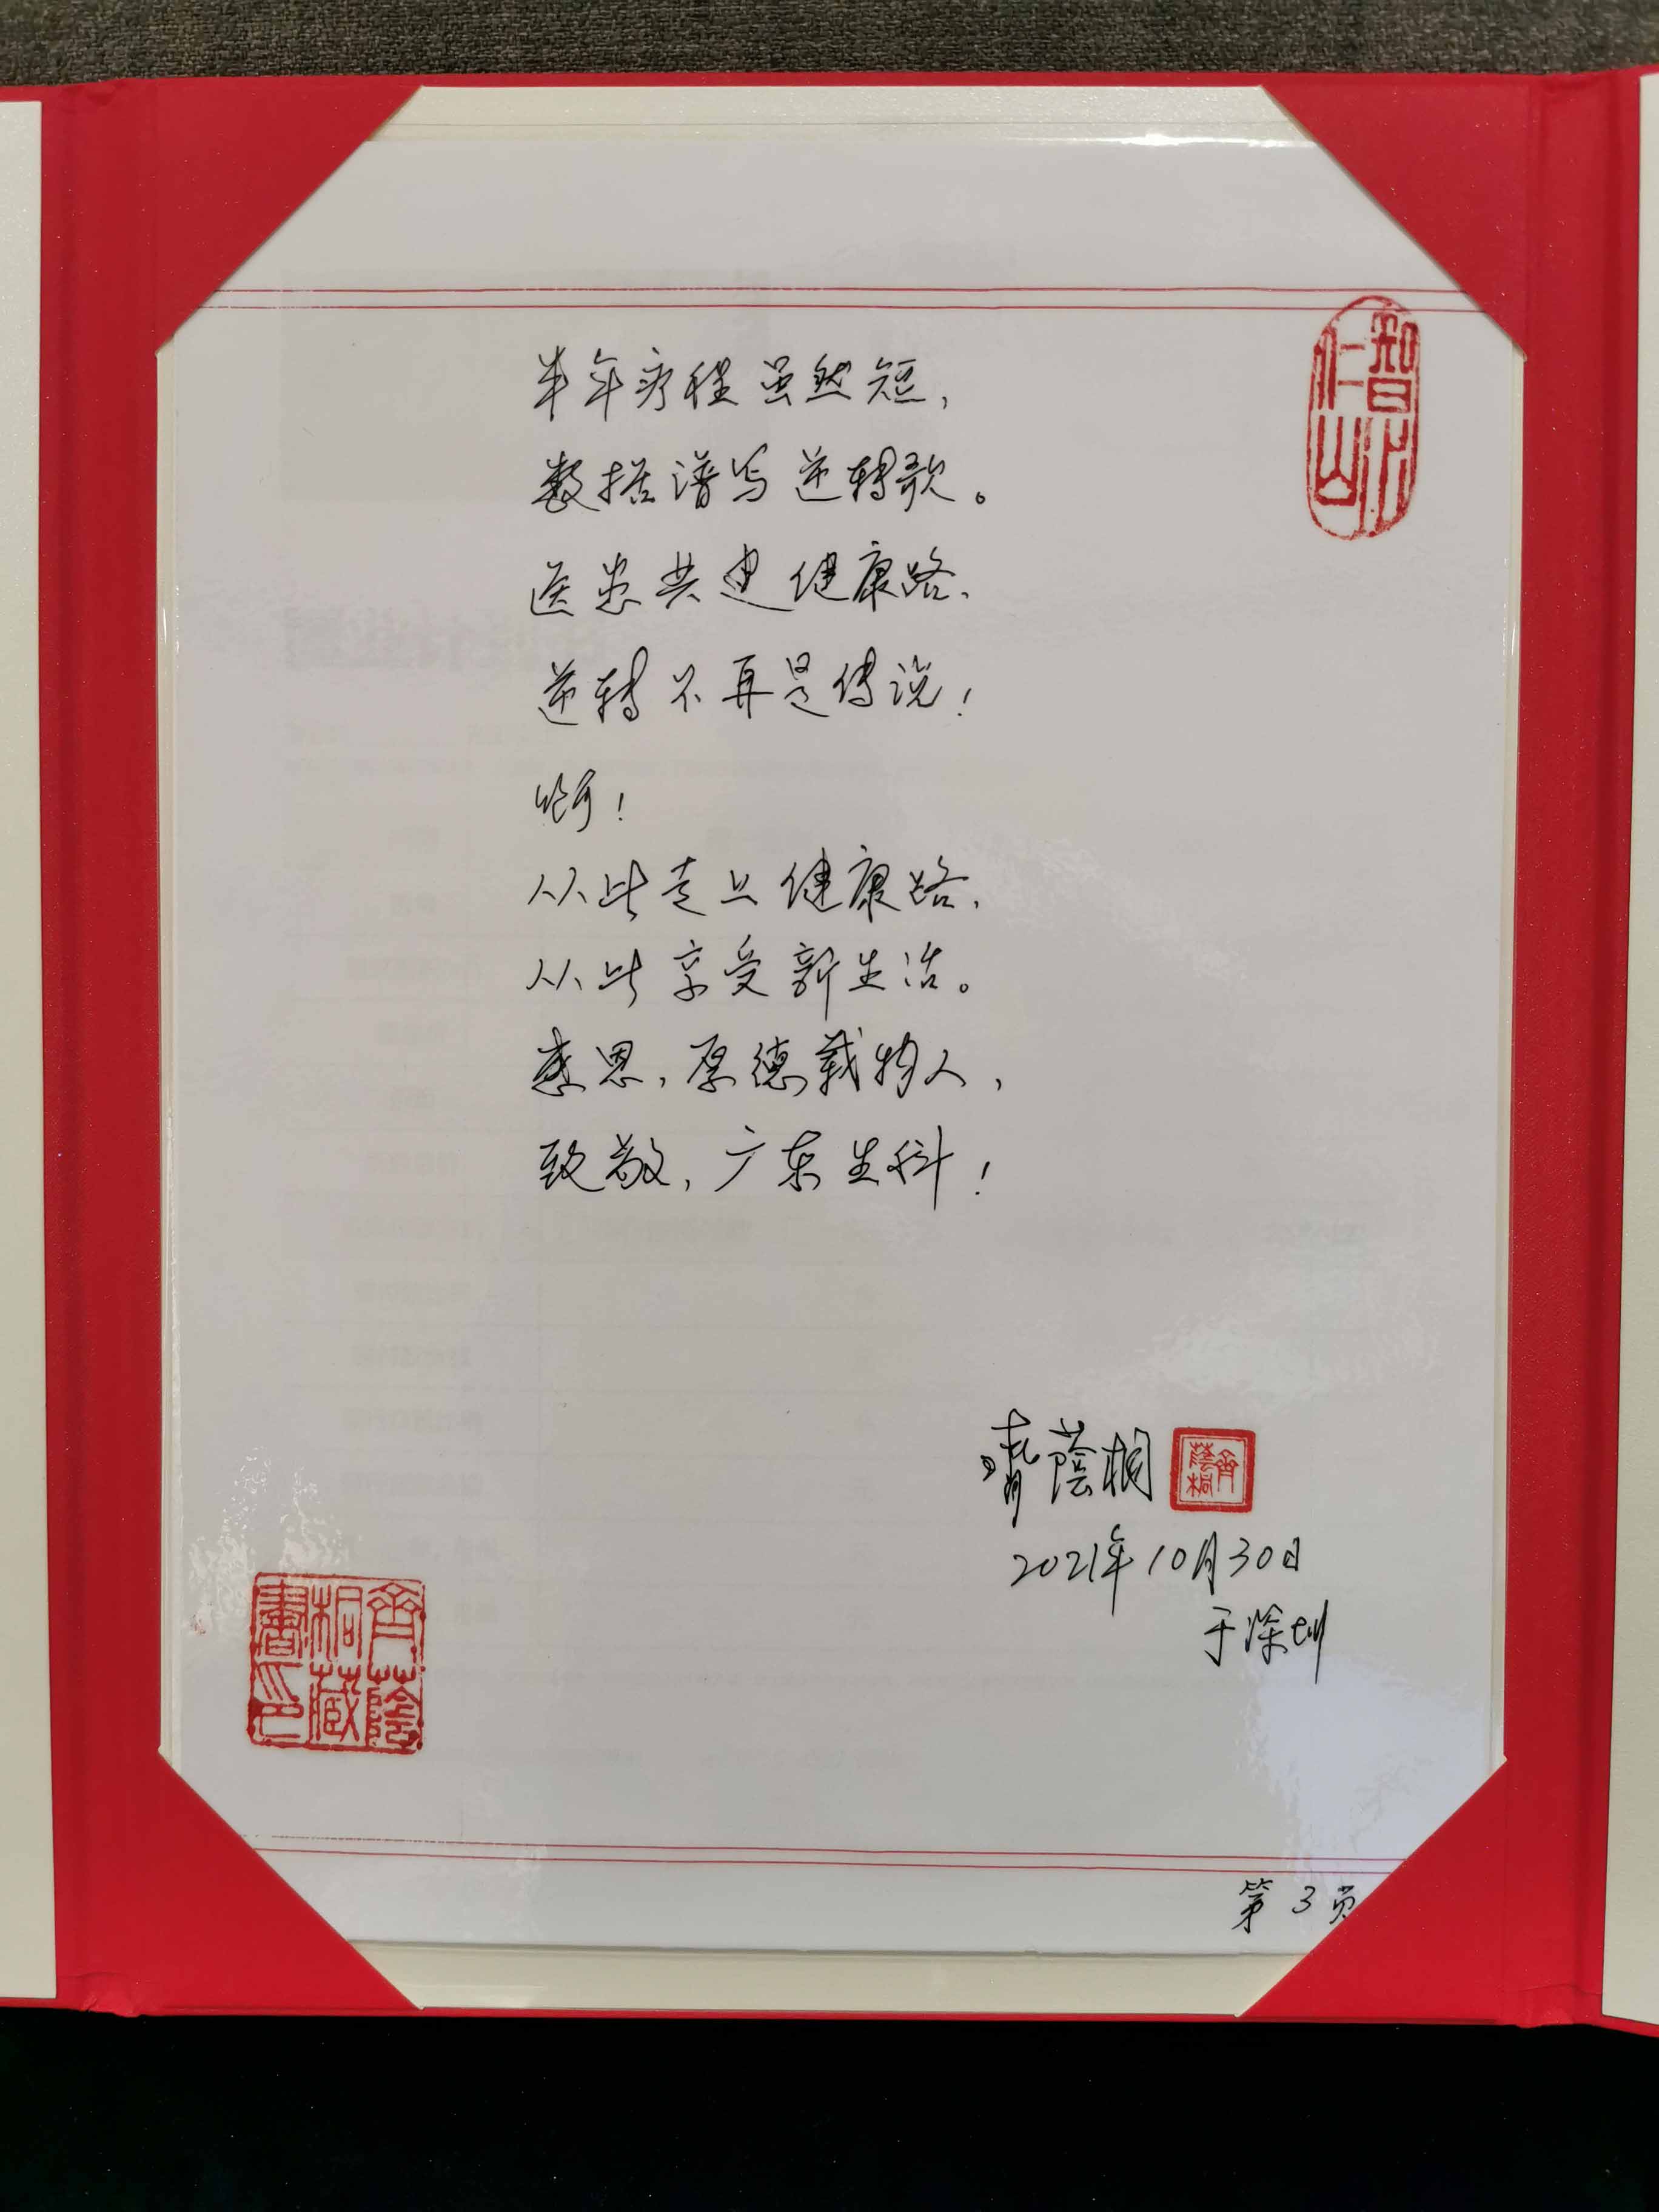 半年疗程虽然短，
数据谱写逆转歌。
医患共建健康路，
逆转不再是传说！
啊！
从此走上健康路，
从此享受新生活。
感恩，厚德载物人，
致敬，广东生科！
齊蔭桐
齊蔭桐
2021年10月30日
于深圳
智水仁山
齊蔭桐藏書印
第3页